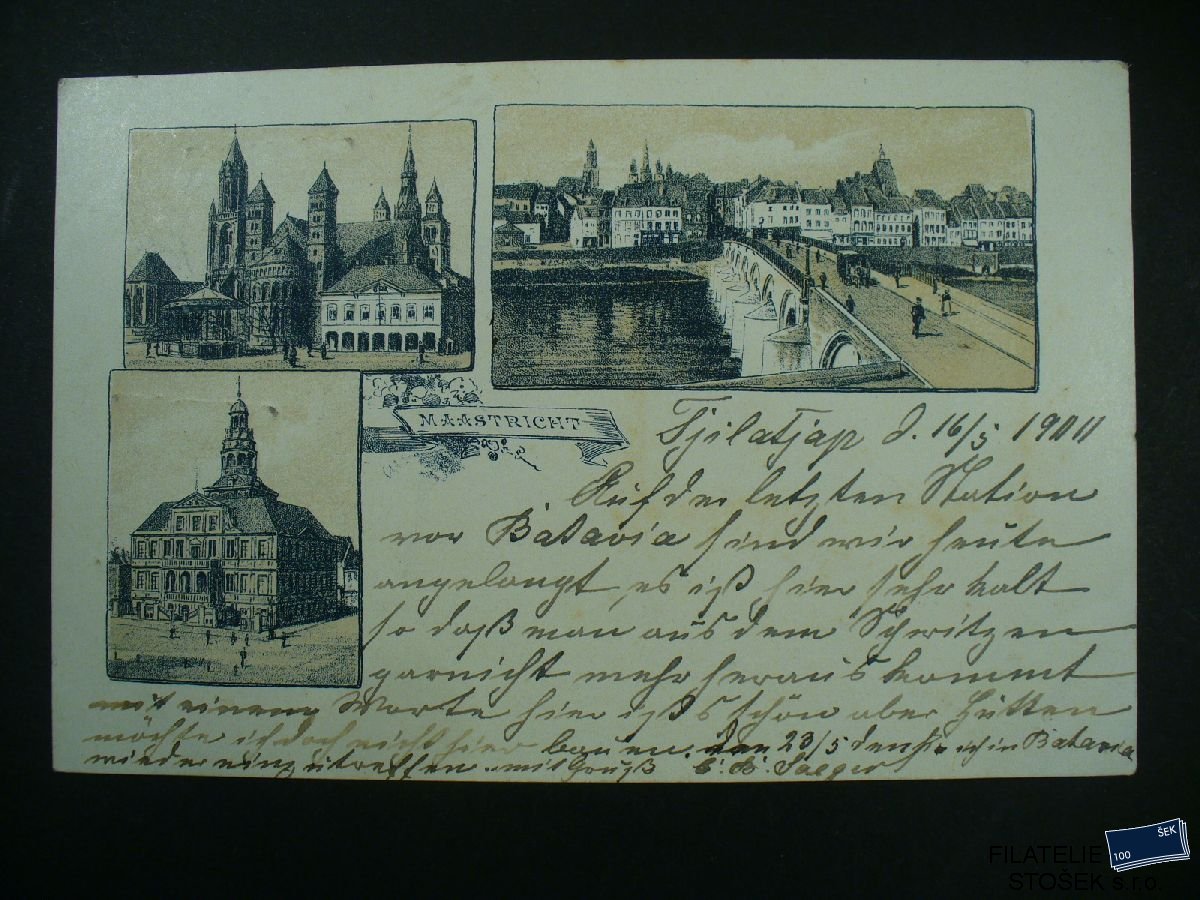 MAASTRICHT
Tjilatjap d. 16/5 1901
Auf der letzten Station
vor Batavia sind wir heute
angelangt, es ist hier sehr kalt
so daß man aus dem Schwitzen
garnicht mehr heraus kommt
mit einem Worte hier ists schön aber Hütten
möchte ich doch nicht hier bauen. den 23/5 denke ich in Batavia
wieder einzutreffen. mit Gruß Jaeger
ŠEK
100
FILATELIE
STOŠEK s.r.o.